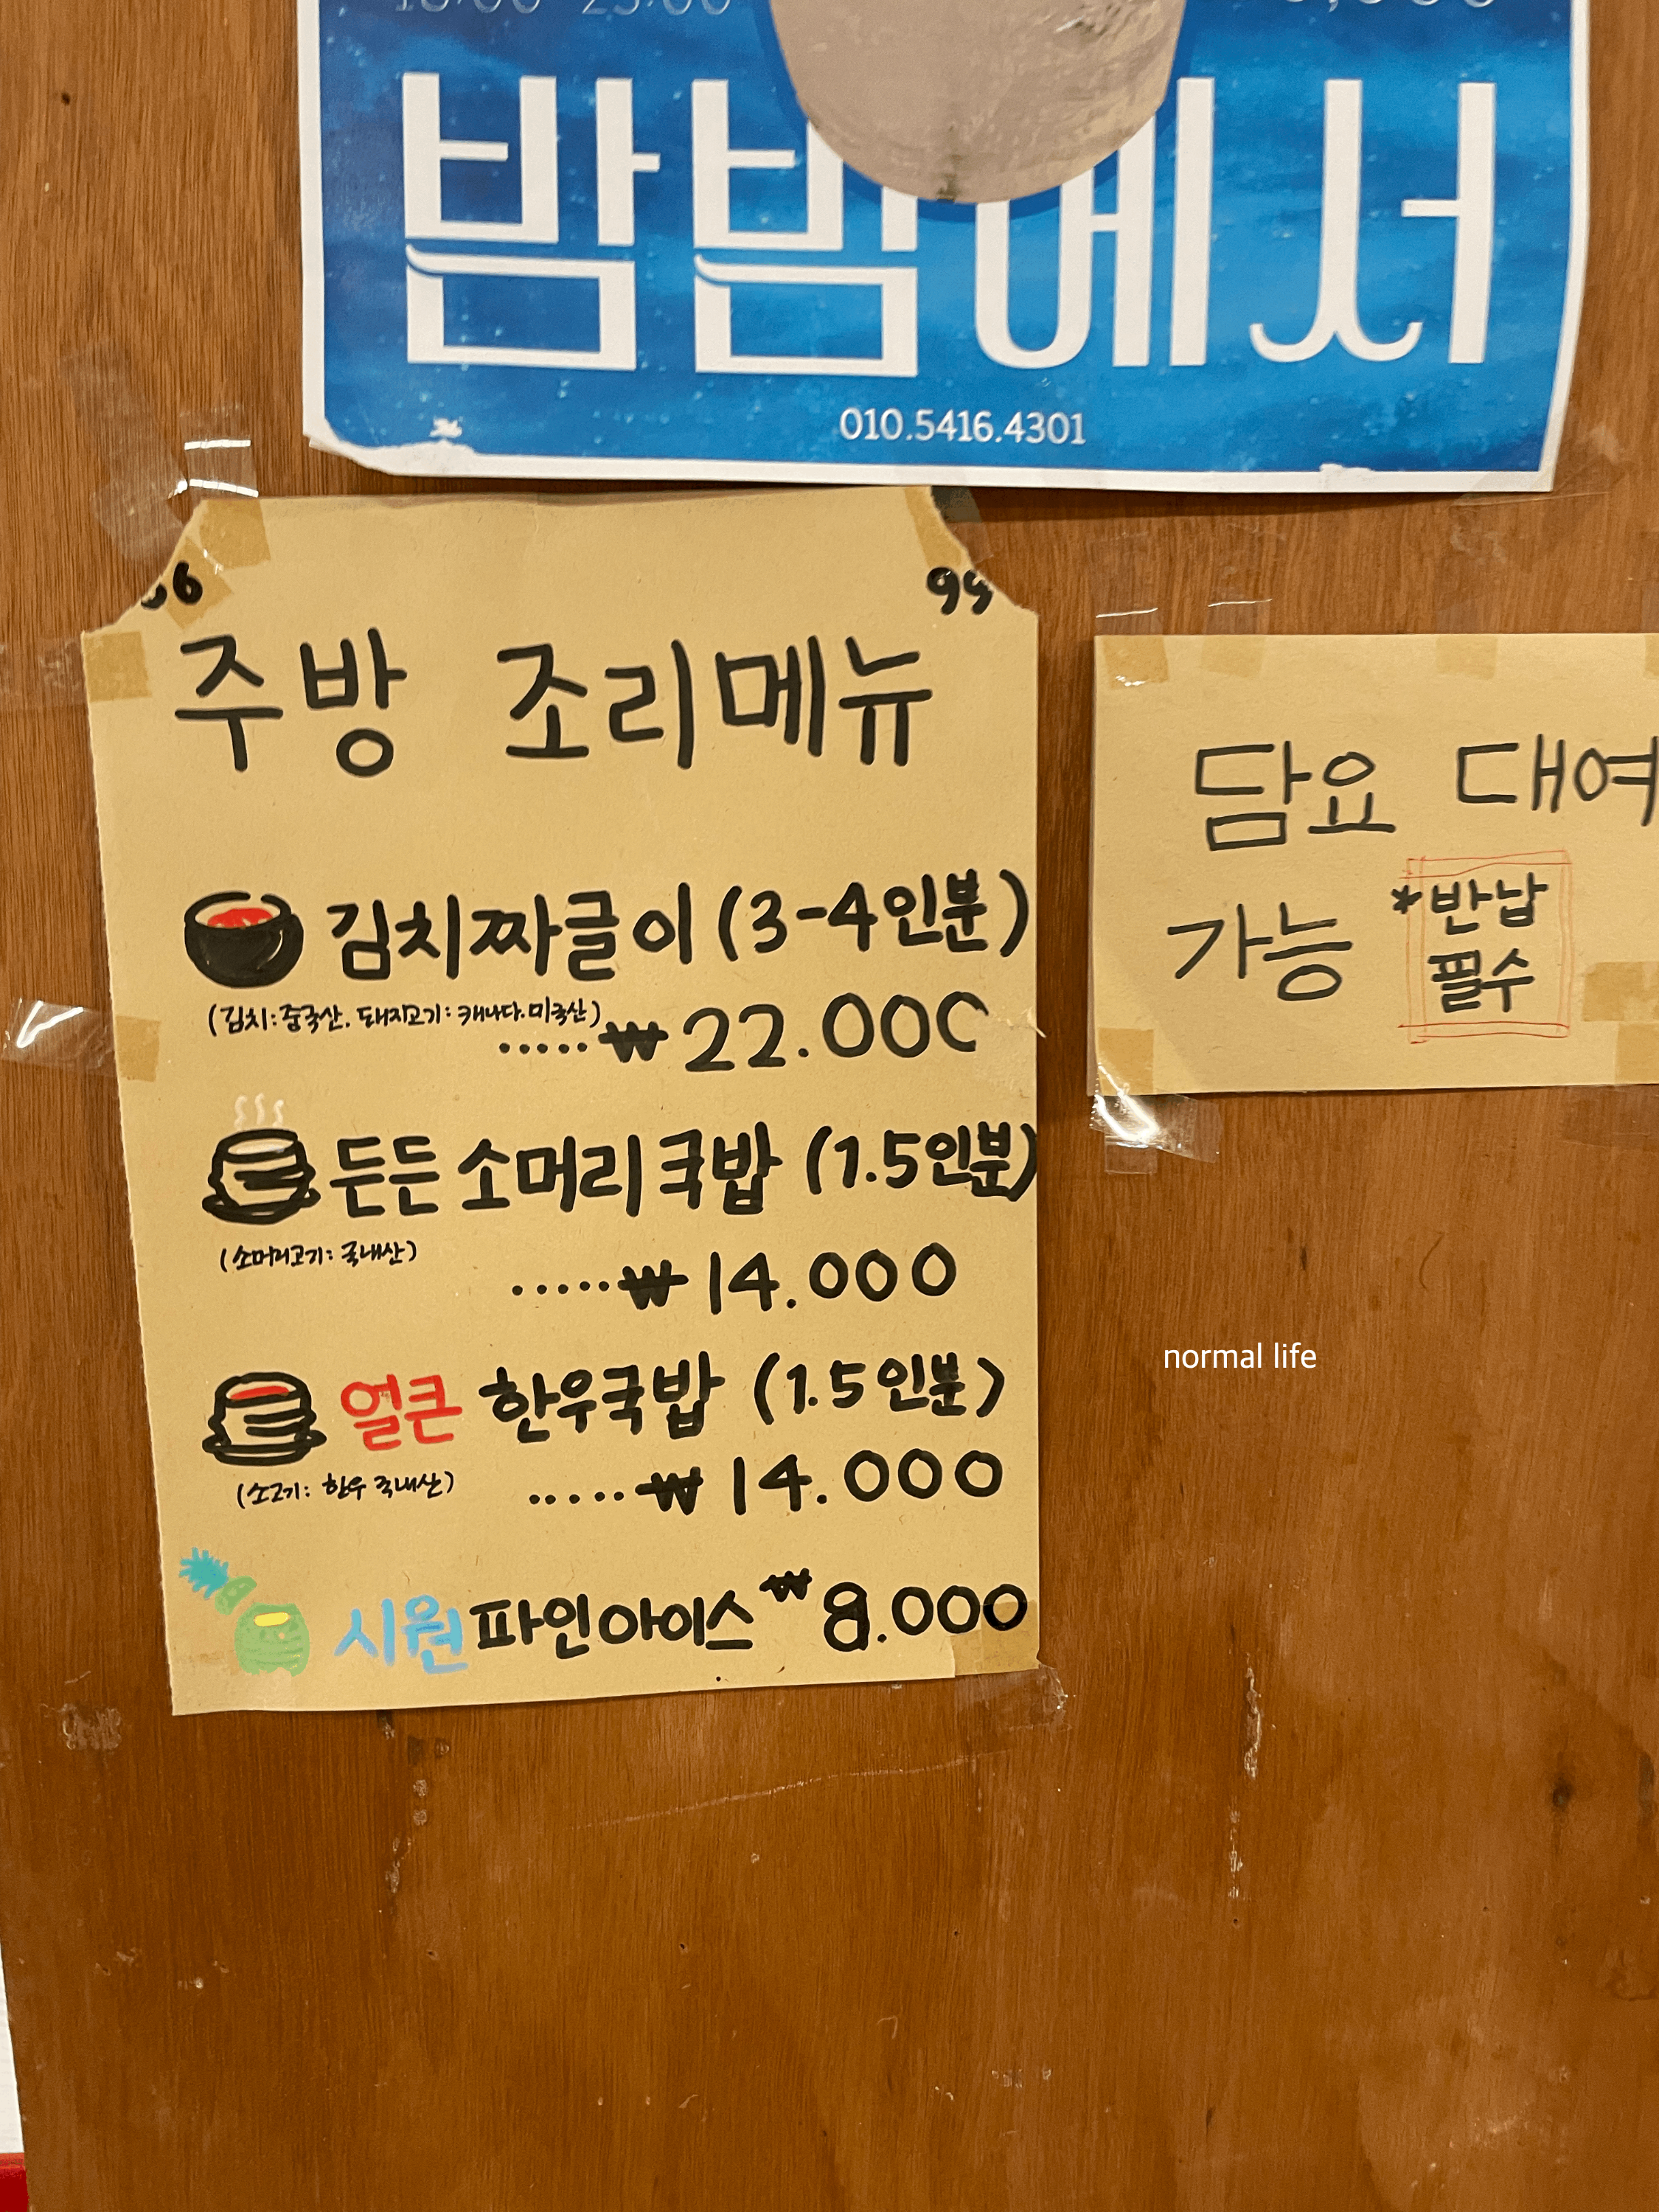 밤밤에서
010.5416.4301
주방 조리메뉴
김치짜글이 (3-4인분)
(김치:중국산. 돼지고기: 캐나다.미국산)
·····₩22.000
든든 소머리국밥 (1.5인분)
(소머리고기: 국내산)
·····₩14.000
얼큰 한우국밥 (1.5인분)
(소고기: 한우 국내산)
·····₩14.000
시원 파인아이스 ₩8.000
담요 대여
가능 *반납
필수
normal life